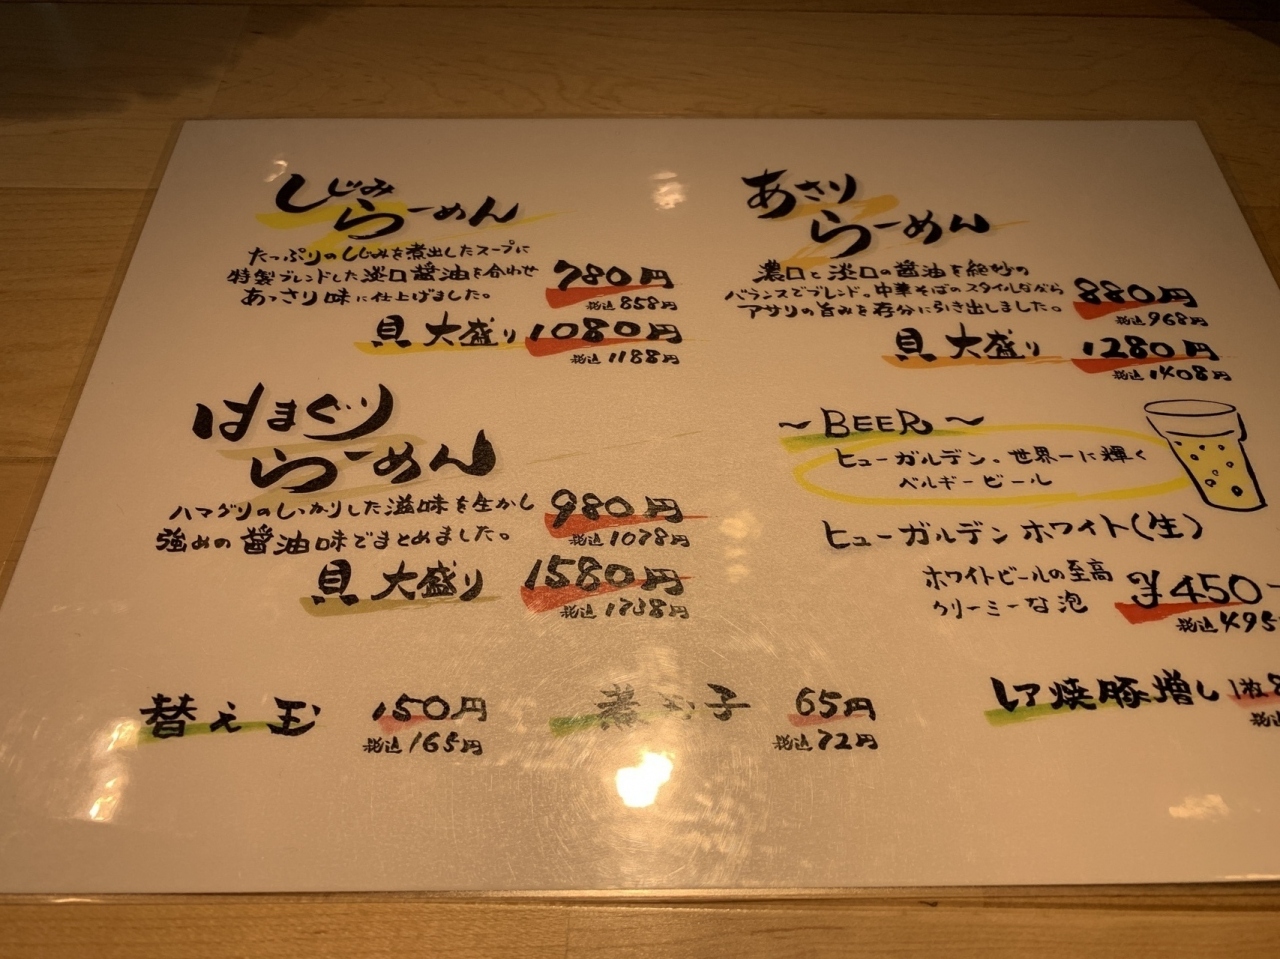 しじみ
らーめん
たっぷりのしじみを煮出したスープに
特製ブレンドした淡口醤油を合わせ
あっさり味に仕上げました。
780円
税込858円
貝大盛り 1080円
税込1188円
あさり
らーめん
濃口と淡口の醤油を絶妙の
バランスでブレンド。中華そばのスタイルながら
アサリの旨みを存分に引き出しました。
880円
税込968円
貝大盛り 1280円
税込1408円
はまぐり
らーめん
ハマグリのしっかりした滋味を生かし
強めの醤油味でまとめました。
980円
税込1078円
貝大盛り 1580円
税込1738円
～BEER～
ヒューガルデン。世界一に輝く
ベルギービール
ヒューガルデンホワイト(生)
ホワイトビールの至高
クリーミーな泡
¥450-
税込¥495
替え玉 150円
税込165円
煮玉子 65円
税込72円
レア焼豚増し 1枚